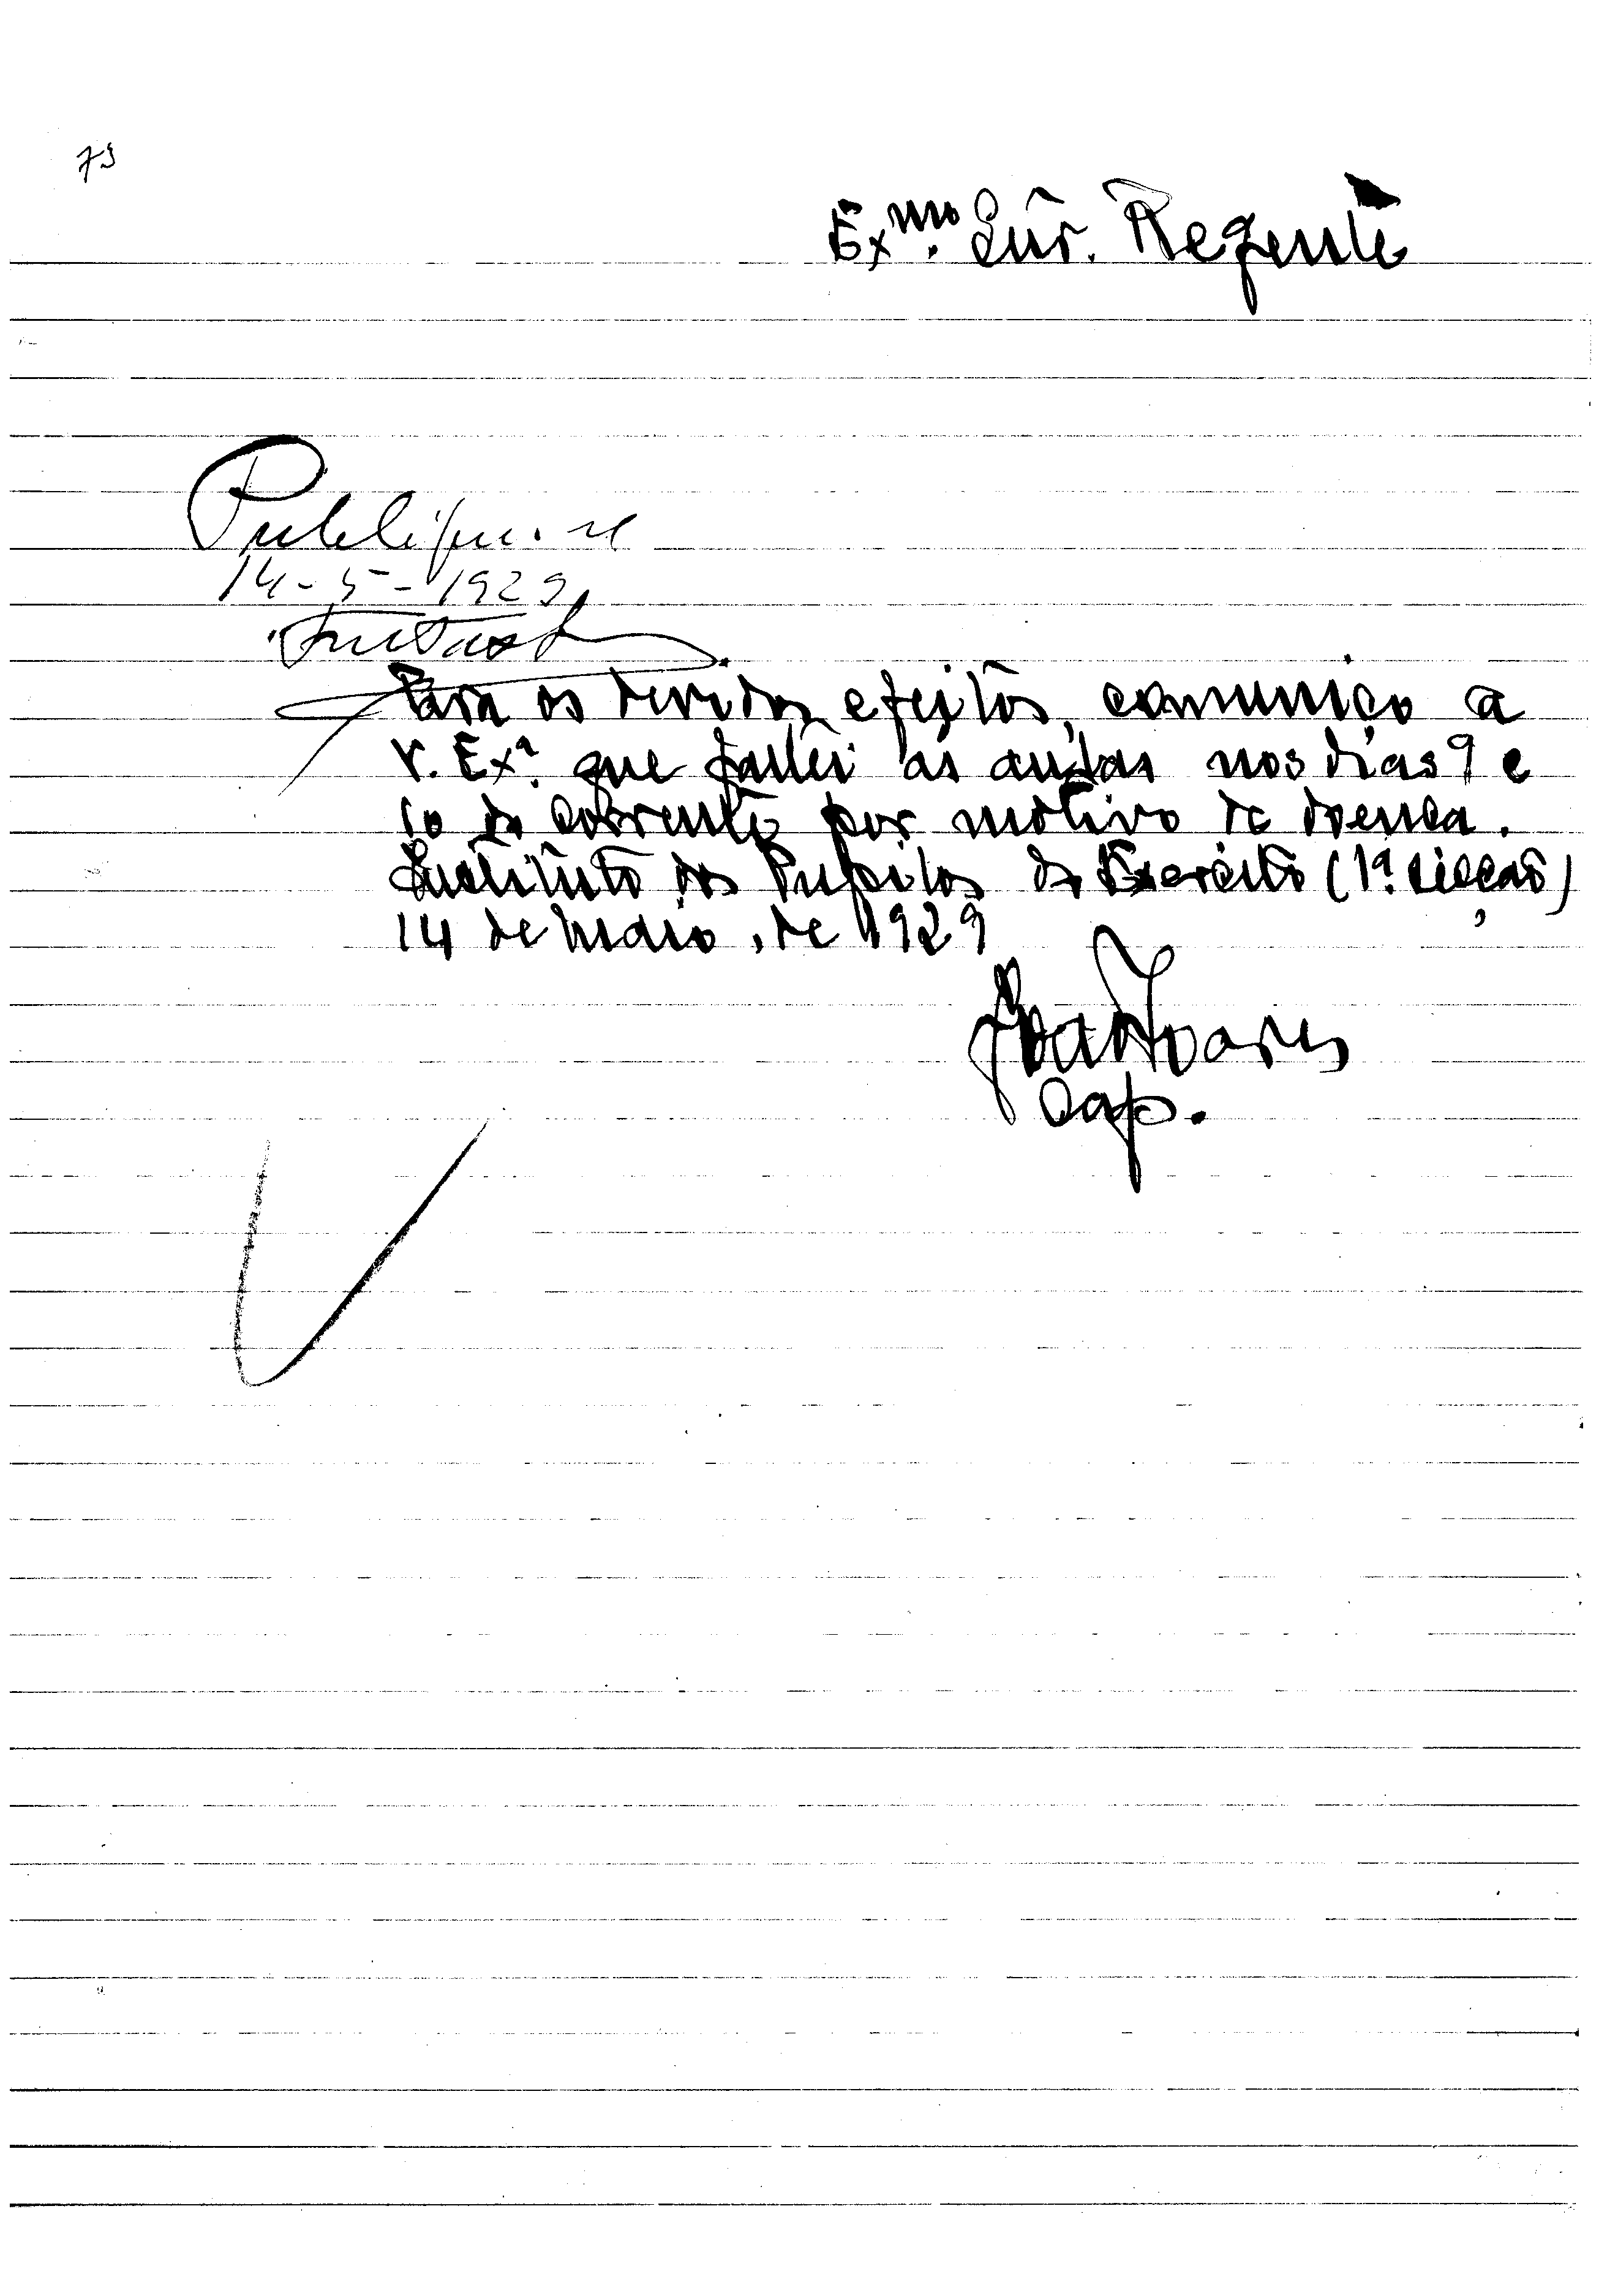 73
Ex.mo Snr. Regente
Publique-se
14-5-1929
Para os devidos efeitos, comunico a
V. Exª que faltei ás aulas nos dias 9 e
10 do corrente por motivo de doença.
Instituto dos Pupilos do Exercito (1ª Secção)
14 de Maio, de 1929
Soares
Cap.